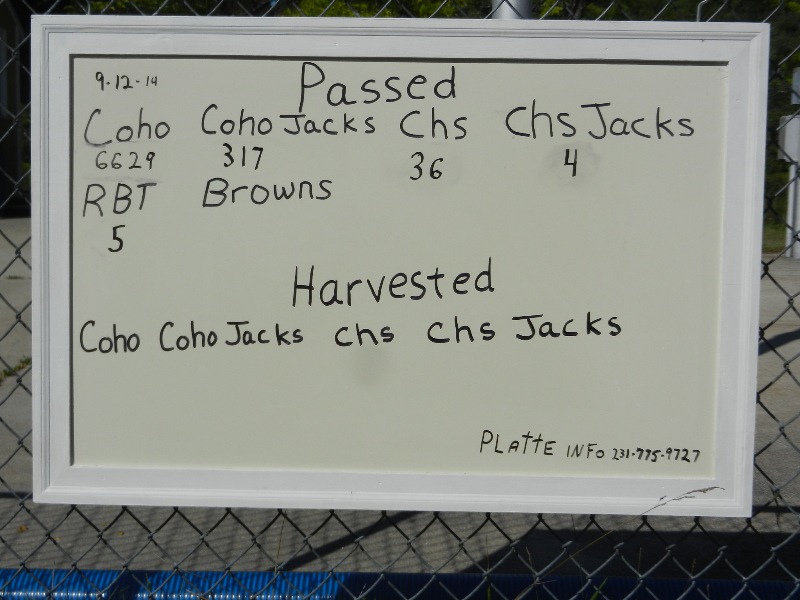 9-12-14
Passed
Coho Coho Jacks Chs Chs Jacks
6629 317 36 4
RBT Browns
5
Harvested
Coho Coho Jacks chs chs Jacks
PLATTE INFO 231-775-9727